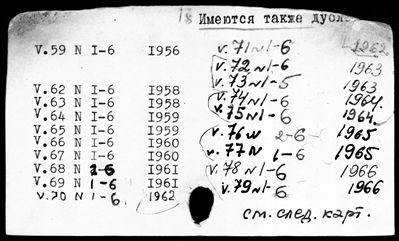 Имеются также
V.59 N I-6 I956
V.62 N I-6 I958
V.63 N I-6 I958
V.64 N I-6 I959
V.65 N I-6 I959
V.66 N I-6 I960
V.67 N I-6 I960
V.68 N 1-6 I96I
V.69 N 1-6 I96I
V.70 N 1-6. 1962
V.71 N1-6 1962
V.72 N1-6 1963
V.73 N1-5 1963
V.74 N1-6 1964.
V.75 N1-6 1964.
V.76 N 2-6 1965
V.77 N 1-6 1965
V.78 N1-6 1966
V.79 N1-6 1966
см. след. карт.